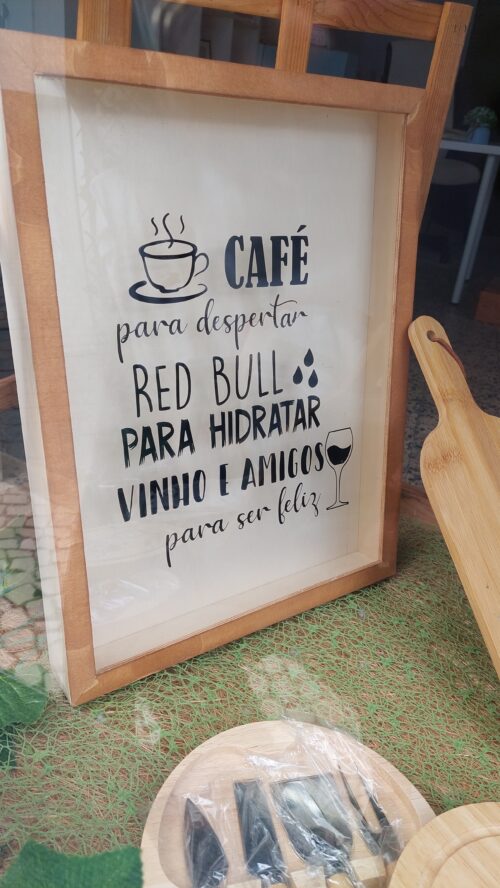 CAFÉ
para despertar
RED BULL
PARA HIDRATAR
VINHO E AMIGOS
para ser feliz